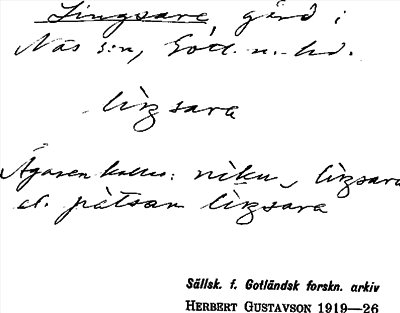 Lingsare, gård i
Näs s:n, Gotl. n. hd.
liŋsara
Ägaren kallas: niku liŋsara
el. pätsar liŋsara
Sällsk. f. Gotländsk forskn. arkiv
HERBERT GUSTAVSON 1919—26